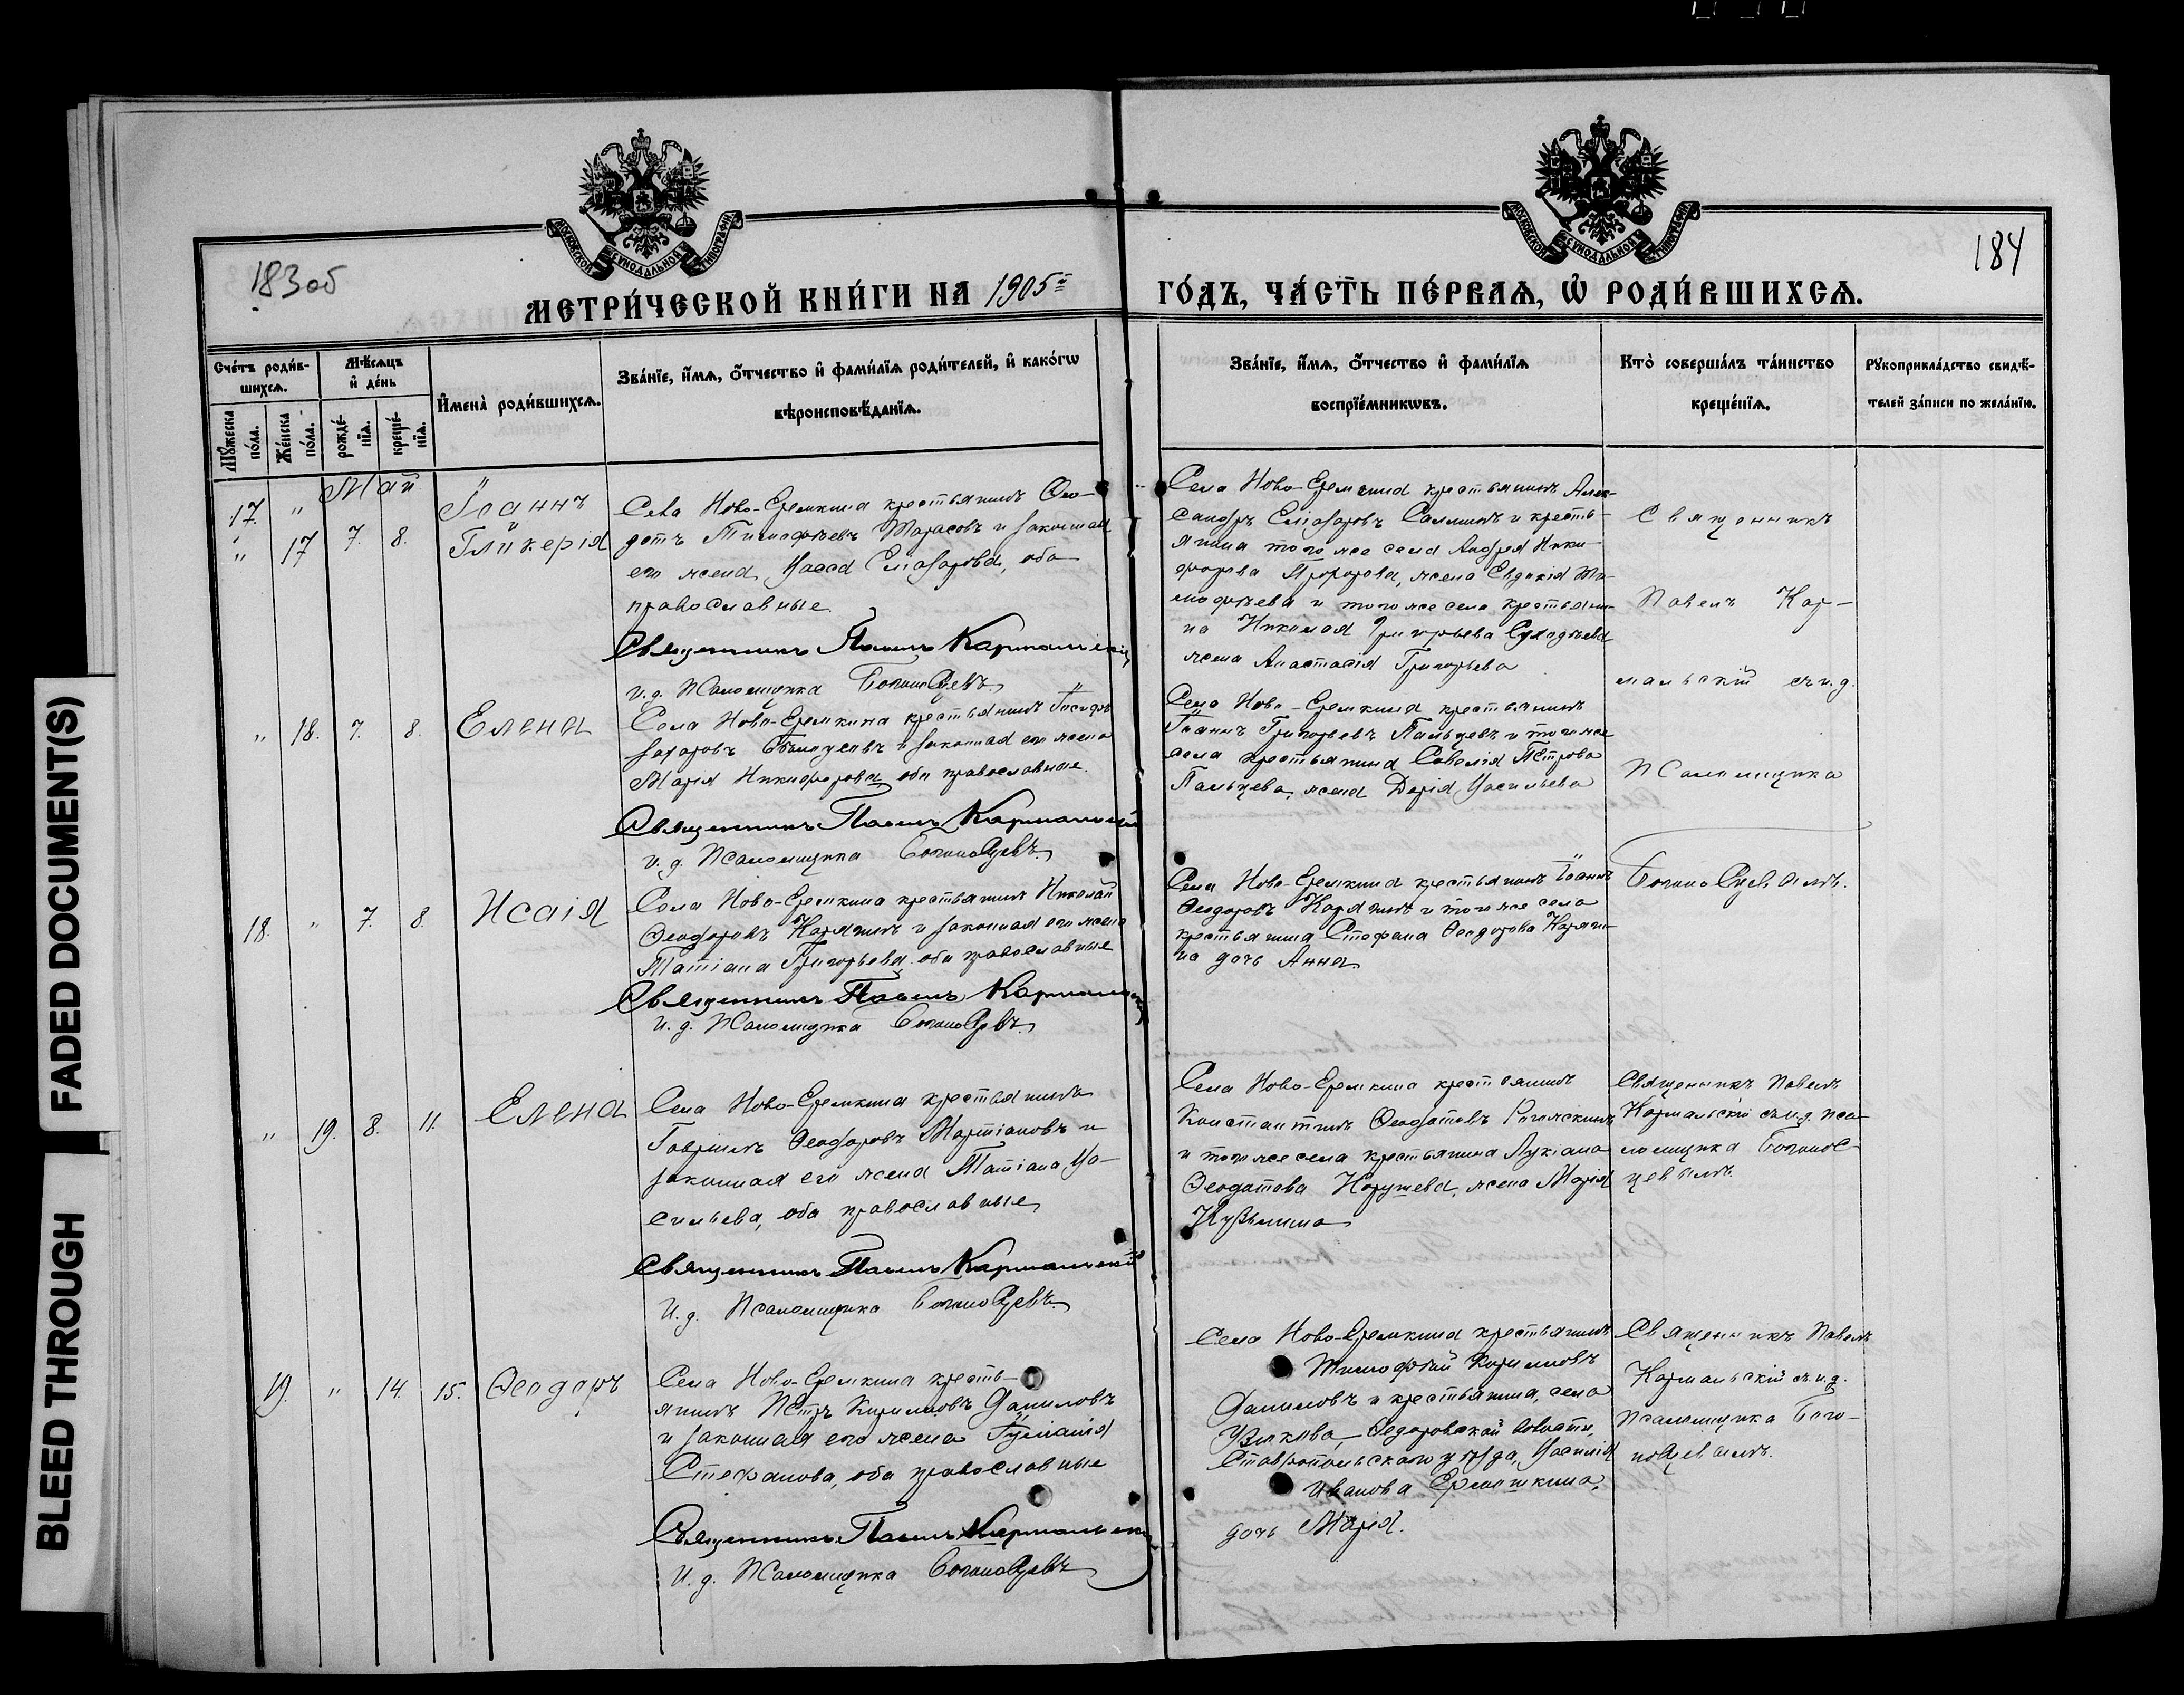 FADED DOCUMENT(S)
BLEED THROUGH
МОСКОВСКОЙ СѴНОДАЛЬНОЙ ТИПОГРАФІИ
МОСКОВСКОЙ СѴНОДАЛЬНОЙ ТИПОГРАФІИ
183об
184
МЕТРИ́ЧЕСКОЙ КНИ́ГИ НА 1905й
ГО́ДЪ, ЧА́СТЬ ПЕ́РВАѦ, Ѡ҆ РОДИ́ВШИХСѦ.
Сче́тъ роди́в-
шихсѧ.
Мꙋ́жеска
по́ла.
Же́нска
по́ла.
Мѣ́сѧцъ
и҆ де́нь
рожде́-
нїѧ.
креще́-
нїѧ.
И҆мена̀ роди́вшихсѧ.
Зва́нїе, и҆́мѧ, ѻ҆́тчество и҆ фами́лїѧ роди́телей, и҆ како́гѡ
вѣроисповѣ́данїѧ.
Зва́нїе, и҆́мѧ, ѻ҆́тчество и҆ фами́лїѧ
воспрїе́мникѡвъ.
Кто̀ соверша́лъ та́инство
креще́нїѧ.
Рꙋкоприкла́дство свидѣ́-
телей за́писи по жела́нїю.
Май
17. "
" 17 7. 8.
Іоаннъ
Гликерія
Села Ново-Еремкина крестьянинъ Ѳео-
дотъ Тимофѣевъ Тарасовъ и законная
его жена Васса Елиазарова, оба
православные
Священникъ Павелъ Кармальскій
и. д. Псаломщика Богоносцевъ
Села Ново-Еремкина крестьянинъ Алек-
сандръ Елиазаровъ и кресть-
янина того же села Андрея Ники-
форова жена Евдокія Ти-
мофѣева и того же села крестьяни-
на Николая Григорьева
жена Анастасія Григорьева
Священникъ
Павелъ Кар-
мальскій съ и. д.
Псаломщика
Богоносцевымъ.
" 18. 7. 8. Елена
Села Ново-Еремкина крестьянинъ Исидоръ
Захаровъ и законная его жена
Марія Никифорова, оба православные.
Священникъ Павелъ Кармальскій
и. д. Псаломщика Богоносцевъ
Села Ново-Еремкина крестьянинъ
Іоаннъ Григорьевъ Пальцевъ и того же
села крестьянина Савелія Петрова
Пальцева, жена Дарія Васильева
18. " 7. 8. Исаія
Села Ново-Еремкина крестьянинъ Николай
Ѳеодоровъ Карягинъ и законная его жена
Татіана Григорьева оба православные
Священникъ Павелъ Кармальскій
и. д. Псаломщика Богоносцевъ
Села Ново-Еремкина крестьянинъ Іоаннъ
Ѳеодоровъ Карягинъ и того же села
крестьянина Стефана Ѳеодорова Каряги-
на дочь Анна
" 19. 8. 11. Елена
Села Ново-Еремкина крестьянинъ
Гавріилъ Ѳеодоровъ Мартіановъ и
законная его жена Татіана Ва-
сильева, оба православные
Священникъ Павелъ Кармальскій
И. д. Псаломщика Богоносцевъ
Села Ново-Еремкина крестьянинъ
Константинъ Ѳеодотовъ
и того же села крестьянина Лукіана
Ѳеодотова жена Марія
Кузьмина
Священникъ Павелъ
Кармальскій съ и. д. пса-
ломщика Богонос-
цевымъ.
19. " 14. 15. Ѳеодоръ
Села Ново-Еремкина кресть-
янинъ Петръ Кирилловъ Даниловъ
и законная его жена Іуліанія
Стефанова, оба православные
Священникъ Павелъ Кармальскій
И. д. Псаломщика Богоносцевъ
Села Ново-Еремкина крестьянинъ
Тимофѣй Кирилловъ
Даниловъ и крестьянина, села
Узюкова, Ѳедоровской волости,
Ставропольскаго уѣзда, Василія
Иванова Ермошкина,
дочь Марія.
Священникъ Павелъ
Кармальскій съ и. д.
Псаломщика Бого-
носцевымъ.